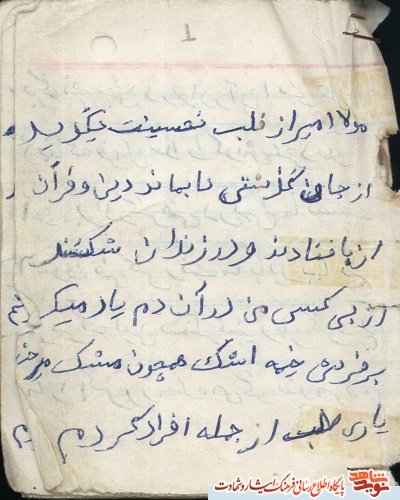 ۱
مولا امیر از قلب تحسینت میگوید
از جان گذشتی تا بماند دین و قرآن
از پا فتادند و در زندان شکستند
از بی کسی من در آن دم یاد میکر
بر فرد ری خیمه اشک همچون مشک
یاری طلب از جمله افراد کردم
نوید شاهد
پایگاه اطلاع رسانی فرهنگ ایثار و شهادت